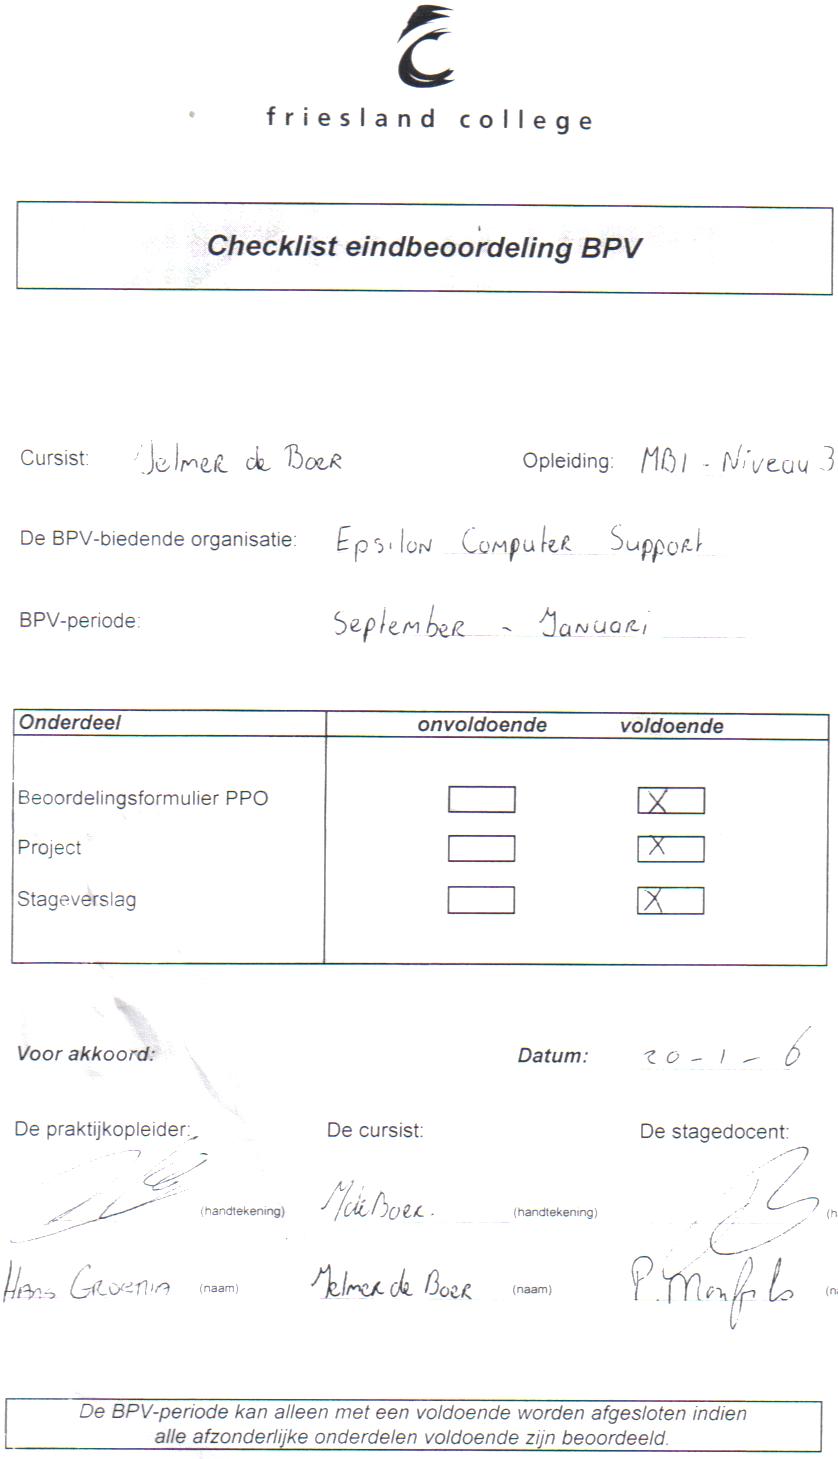 friesland college
Checklist eindbeoordeling BPV
Cursist: Jelmer de Boer Opleiding: MBI - Niveau 3
De BPV-biedende organisatie: Epsilon Computer Support
BPV-periode: September - Januari
Onderdeel onvoldoende voldoende
Beoordelingsformulier PPO X
Project X
Stageverslag X
Voor akkoord: Datum: 20-1-6
De praktijkopleider: De cursist: De stagedocent:
(handtekening) JdeBoer. (handtekening) (h
Hans (naam) Jelmer de Boer (naam) P. Monfils (n
De BPV-periode kan alleen met een voldoende worden afgesloten indien
alle afzonderlijke onderdelen voldoende zijn beoordeeld.